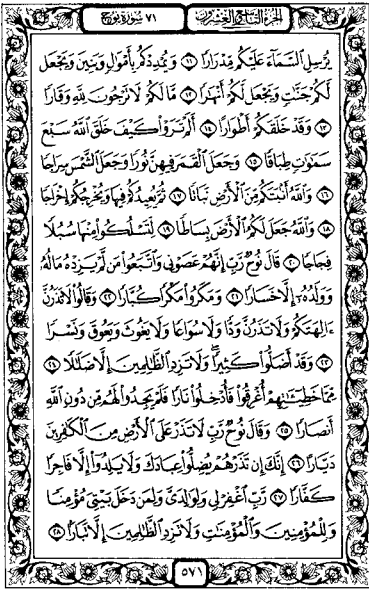 الجزء التاسع والعشرون
٧١ سورة نوح
يُرْسِلِ السَّمَاءَ عَلَيْكُم مِّدْرَارًا ﴿١١﴾ وَيُمْدِدْكُم بِأَمْوَالٍ وَبَنِينَ وَيَجْعَل
لَّكُمْ جَنَّاتٍ وَيَجْعَل لَّكُمْ أَنْهَارًا ﴿١٢﴾ مَّا لَكُمْ لَا تَرْجُونَ لِلَّهِ وَقَارًا
﴿١٣﴾ وَقَدْ خَلَقَكُمْ أَطْوَارًا ﴿١٤﴾ أَلَمْ تَرَوْا كَيْفَ خَلَقَ اللَّهُ سَبْعَ
سَمَاوَاتٍ طِبَاقًا ﴿١٥﴾ وَجَعَلَ الْقَمَرَ فِيهِنَّ نُورًا وَجَعَلَ الشَّمْسَ سِرَاجًا
﴿١٦﴾ وَاللَّهُ أَنبَتَكُم مِّنَ الْأَرْضِ نَبَاتًا ﴿١٧﴾ ثُمَّ يُعِيدُكُمْ فِيهَا وَيُخْرِجُكُمْ إِخْرَاجًا
﴿١٨﴾ وَاللَّهُ جَعَلَ لَكُمُ الْأَرْضَ بِسَاطًا ﴿١٩﴾ لِّتَسْلُكُوا مِنْهَا سُبُلًا
فِجَاجًا ﴿٢٠﴾ قَالَ نُوحٌ رَّبِّ إِنَّهُمْ عَصَوْنِي وَاتَّبَعُوا مَن لَّمْ يَزِدْهُ مَالُهُ
وَوَلَدُهُ إِلَّا خَسَارًا ﴿٢١﴾ وَمَكَرُوا مَكْرًا كُبَّارًا ﴿٢٢﴾ وَقَالُوا لَا تَذَرُنَّ
آلِهَتَكُمْ وَلَا تَذَرُنَّ وَدًّا وَلَا سُوَاعًا وَلَا يَغُوثَ وَيَعُوقَ وَنَسْرًا
﴿٢٣﴾ وَقَدْ أَضَلُّوا كَثِيرًا ۖ وَلَا تَزِدِ الظَّالِمِينَ إِلَّا ضَلَالًا ﴿٢٤﴾
مِّمَّا خَطِيئَاتِهِمْ أُغْرِقُوا فَأُدْخِلُوا نَارًا فَلَمْ يَجِدُوا لَهُم مِّن دُونِ اللَّهِ
أَنصَارًا ﴿٢٥﴾ وَقَالَ نُوحٌ رَّبِّ لَا تَذَرْ عَلَى الْأَرْضِ مِنَ الْكَافِرِينَ
دَيَّارًا ﴿٢٦﴾ إِنَّكَ إِن تَذَرْهُمْ يُضِلُّوا عِبَادَكَ وَلَا يَلِدُوا إِلَّا فَاجِرًا
كَفَّارًا ﴿٢٧﴾ رَّبِّ اغْفِرْ لِي وَلِوَالِدَيَّ وَلِمَن دَخَلَ بَيْتِيَ مُؤْمِنًا
وَلِلْمُؤْمِنِينَ وَالْمُؤْمِنَاتِ وَلَا تَزِدِ الظَّالِمِينَ إِلَّا تَبَارًا ﴿٢٨﴾
٥٧١